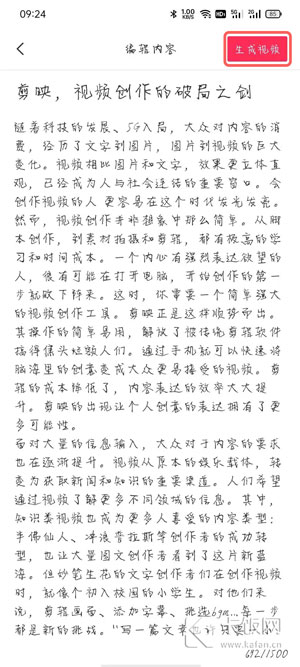 09:24
1.00
KB/s
5G
2G
85
编辑内容
生成视频
剪映，视频创作的破局之剑
随着科技的发展、5G入局，大众对内容的消
费，经历了文字到图片，图片到视频的巨大
变化。视频相比图片和文字，效果更立体直
观，已经成为人与社会连结的重要窗口。会
创作视频的人更容易在这个时代发光发亮。
然而，视频创作并非想象中那么简单。从脚
本创作，到素材拍摄和剪辑，都有极高的学
习和时间成本。一个内心有强烈表达欲望的
人，很有可能在打开电脑，开始创作的第一
步就败下阵来。这时，你需要一个简单强大
的视频创作工具。剪映正是这样顺势而出。
其操作的简单易用，解放了被传统剪辑软件
搞得焦头烂额人们。通过手机就可以快速将
脑海里的创意变成大众更易接受的视频。剪
辑的成本降低了，内容表达的效率大大提
升。剪映的出现让个人创意的表达拥有了更
多可能性。
面对大量的信息输入，大众对于内容的要求
也在逐渐提升。视频从原本的娱乐载体，转
变为获取新闻和知识的重要渠道。人们希望
通过视频了解更多不同领域的信息。其中，
知识类视频也成为更多人喜爱的内容类型：
半佛仙人、冲浪普拉斯等创作者的成功转
型，也让大量图文创作者看到了这片新蓝
海。但妙笔生花的文字创作者们在创作视频
时，就像个初入校园的小学生。对他们来
说，剪辑画面、添加字幕、挑选bgm...每一步
都是新的挑战。“写一篇文章也许只要1小
692/1500